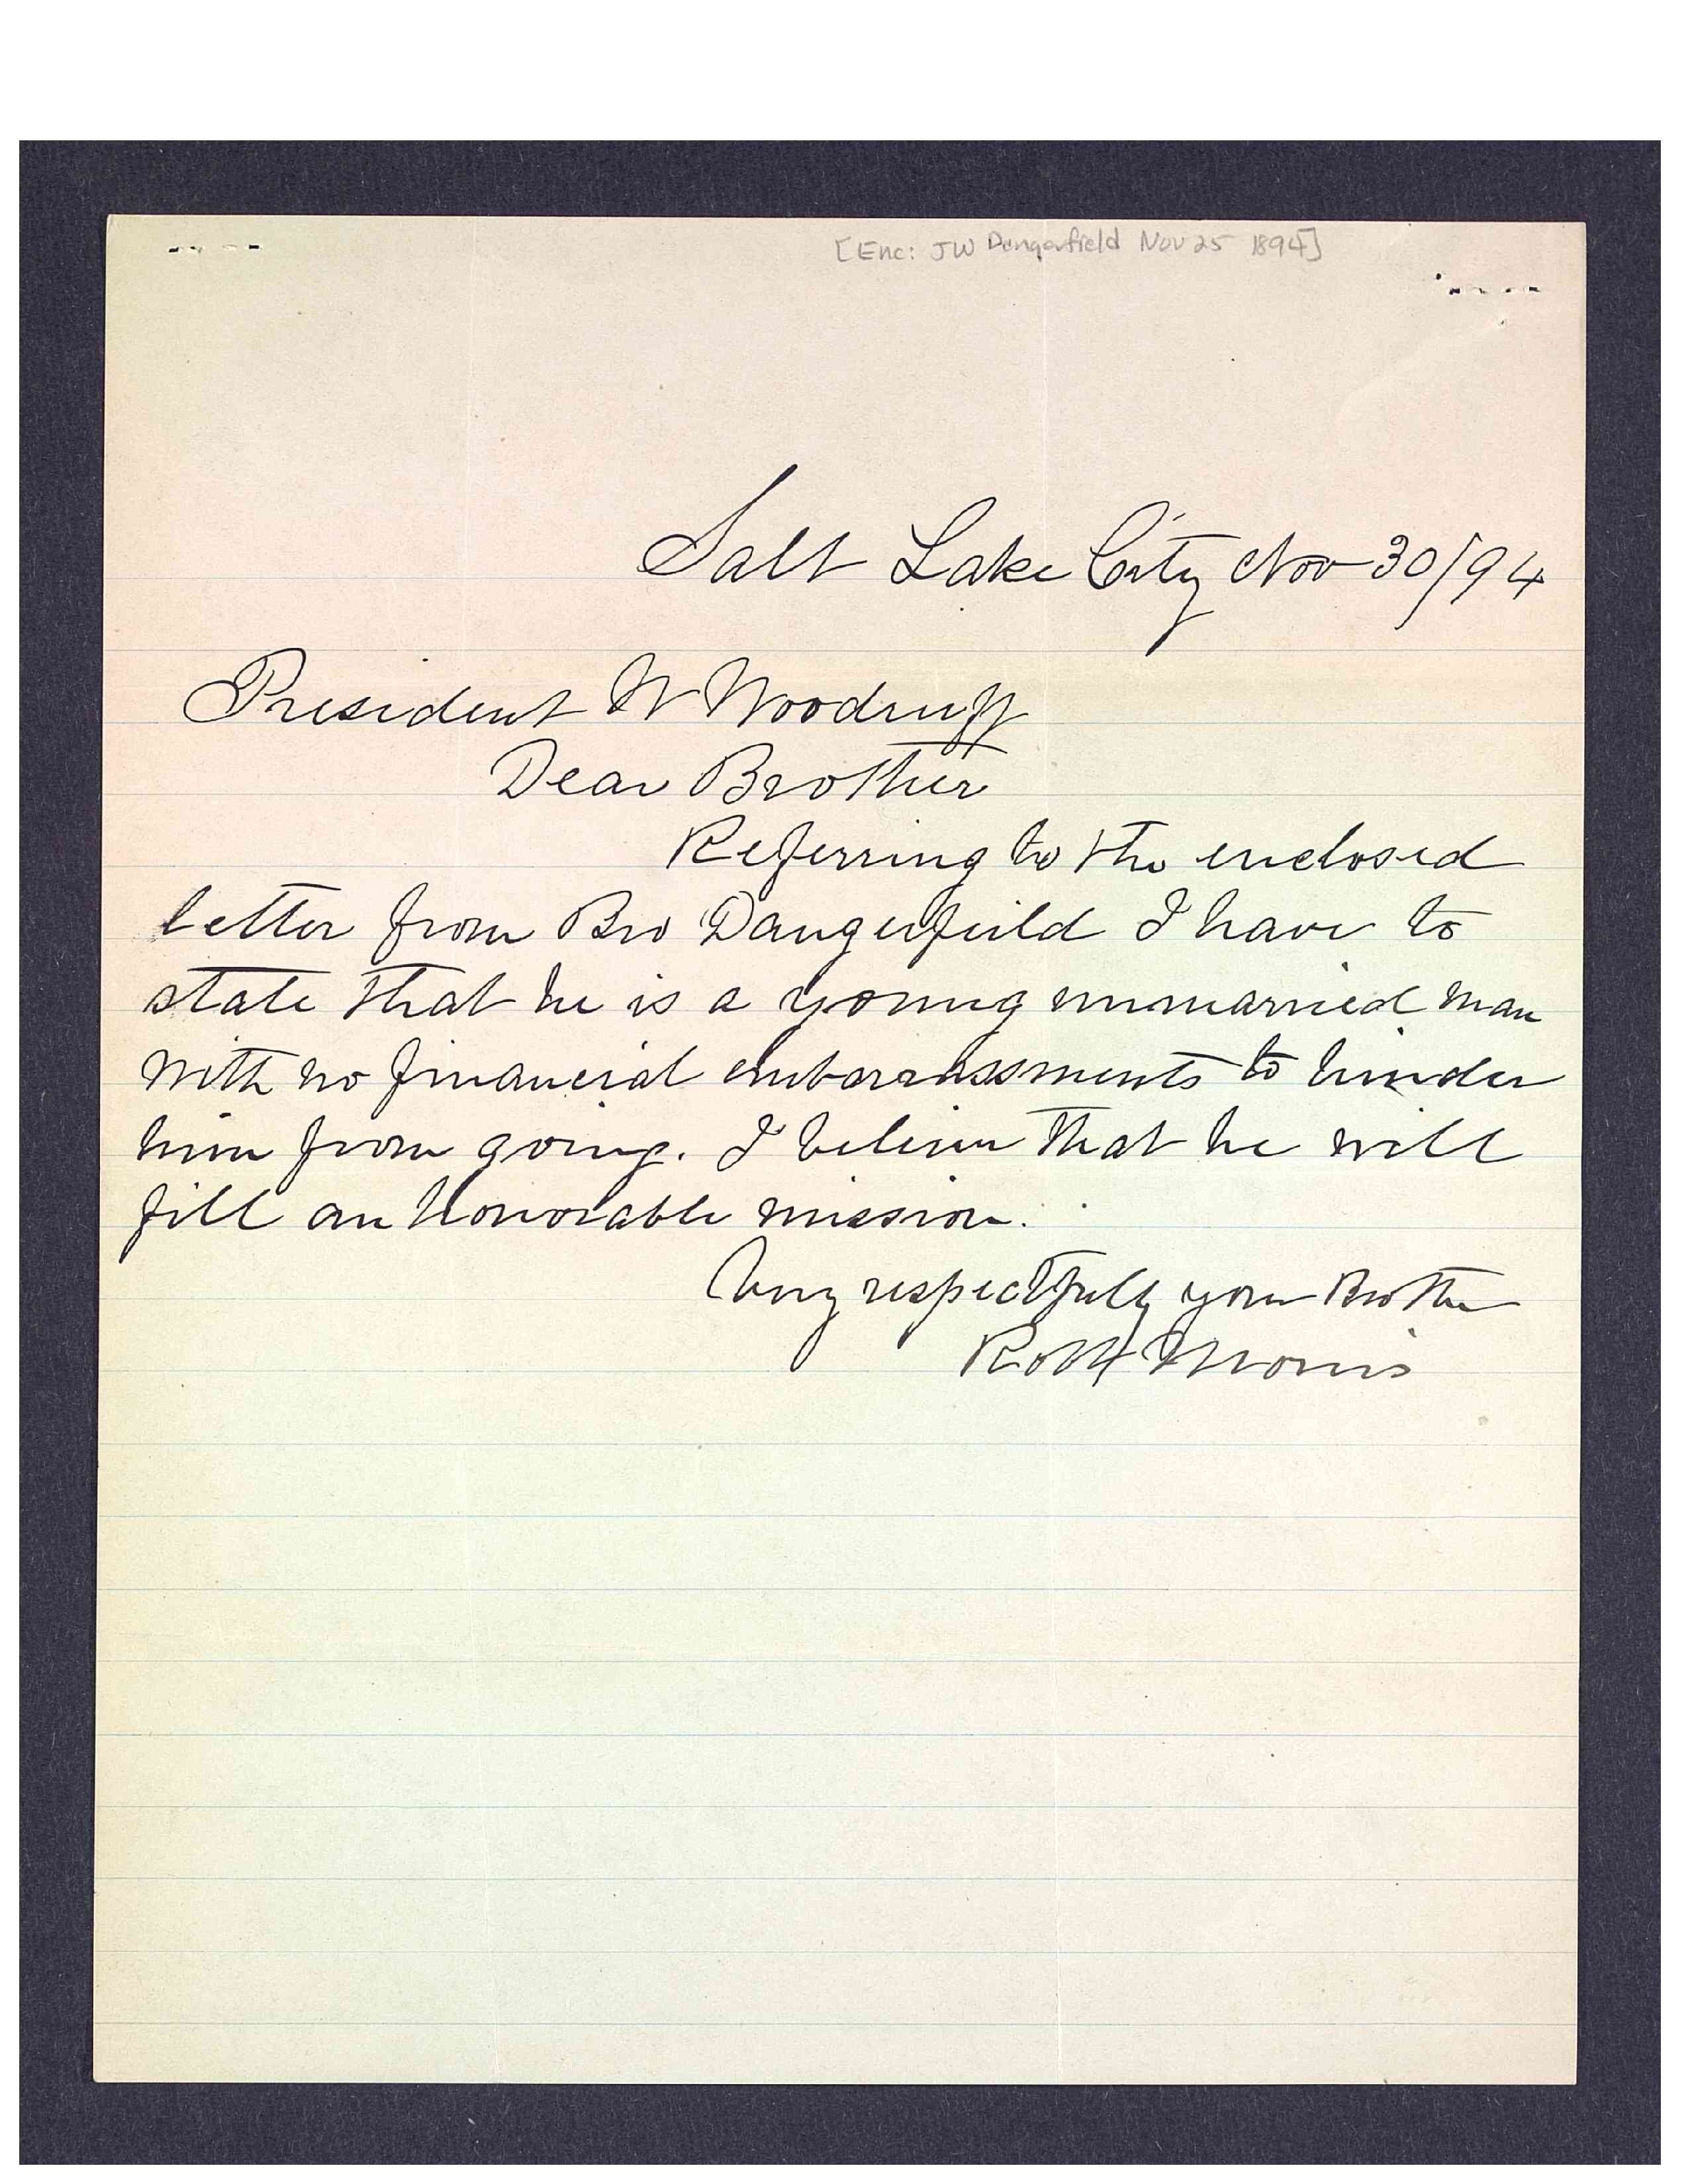 [Enc: JW Dangerfield Nov 25 1894]
Salt Lake City Nov 30/94
President W Woodruff
Dear Brother
Referring to the enclosed
letter from Bro Dangerfeild I have to
state that he is a young unmarried man
with no financial embarrassments to hinder
him from going. I believe that he will
fill an honorable mission.
Very respectfully your Brother
Robt Morris